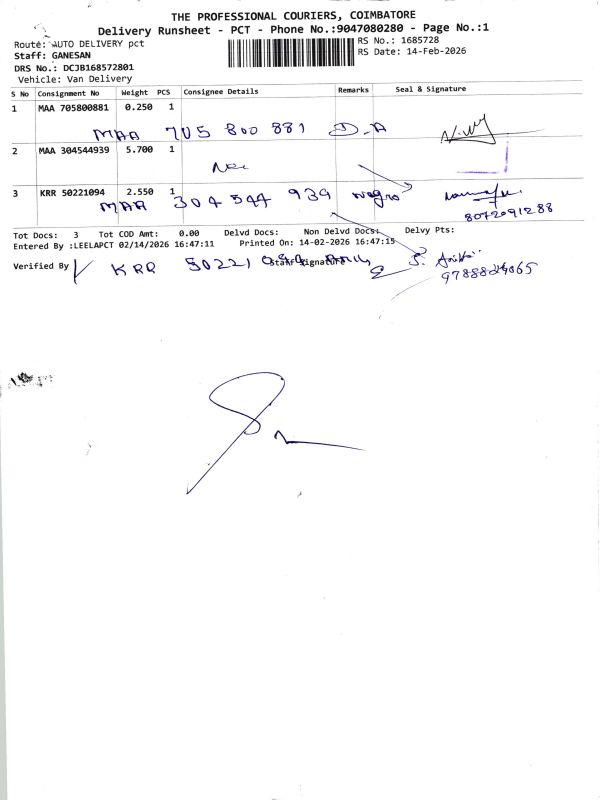 THE PROFESSIONAL COURIERS, COIMBATORE
Delivery Runsheet - PCT - Phone No.:9047080280 - Page No.:1
Route: AUTO DELIVERY pct
RS No.: 1685728
Staff: GANESAN
RS Date: 14-Feb-2026
DRS No.: DCJB168572801
Vehicle: Van Delivery
S No Consignment No Weight PCS Consignee Details Remarks Seal & Signature
1 MAA 705800881 0.250 1
MAA 705 800 881 D-A
2 MAA 304544939 5.700 1
3 KRR 50221094 2.550 1
MAA 304 544 939
8072091288
Tot Docs: 3 Tot COD Amt: 0.00 Delvd Docs: Non Delvd Docs: Delvy Pts:
Entered By :LEELAPCT 02/14/2026 16:47:11 Printed On: 14-02-2026 16:47:15
Verified By Staff Signature
KRR 50221 094